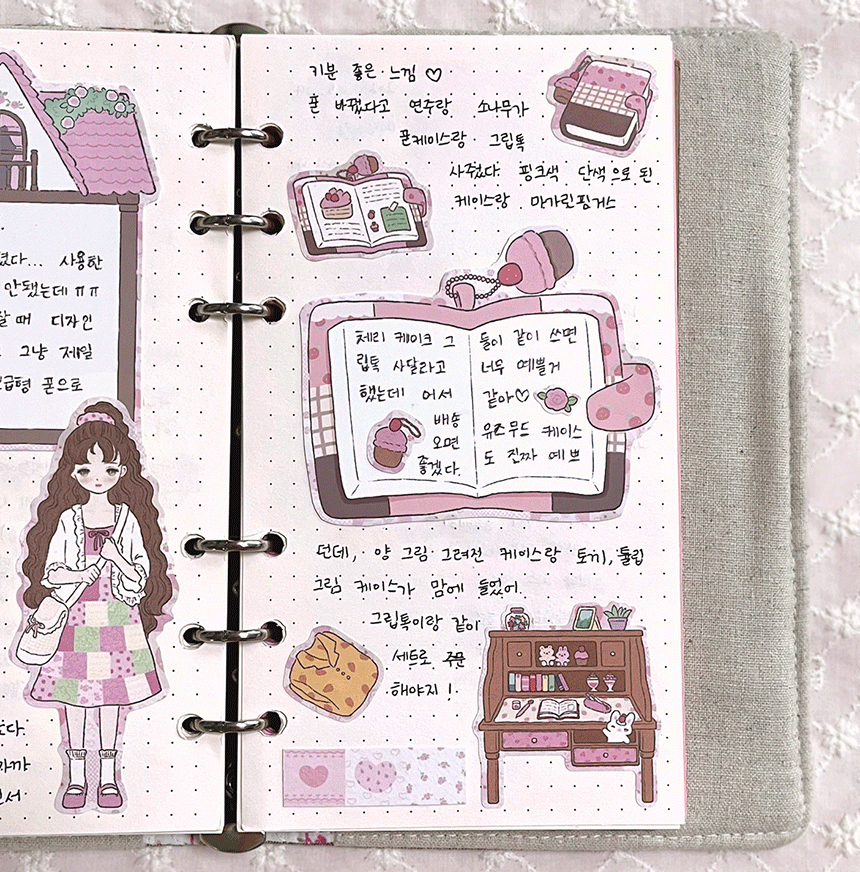 졌다... 사용한
안됐는데 ㅠㅠ
할 때 디자인
그냥 제일
보급형 폰으로
기분 좋은 느낌 ♡
폰 바꿨다고 연주랑 소나무가
폰케이스랑 그립톡
사주었다. 핑크색 단색으로 된
케이스랑 마가린핑거스
체리 케이크 그
립톡 사달라고
했는데 어서
배송
오면
좋겠다.
둘이 같이 쓰면
너무 예쁠거
같아♡
유즈무드 케이스
도 진짜 예쁘
던데, 양 그림 그려전 케이스랑 토끼, 튤립
그림 케이스가 맘에 들었어.
그립톡이랑 같이
세트로 주문
해야지!